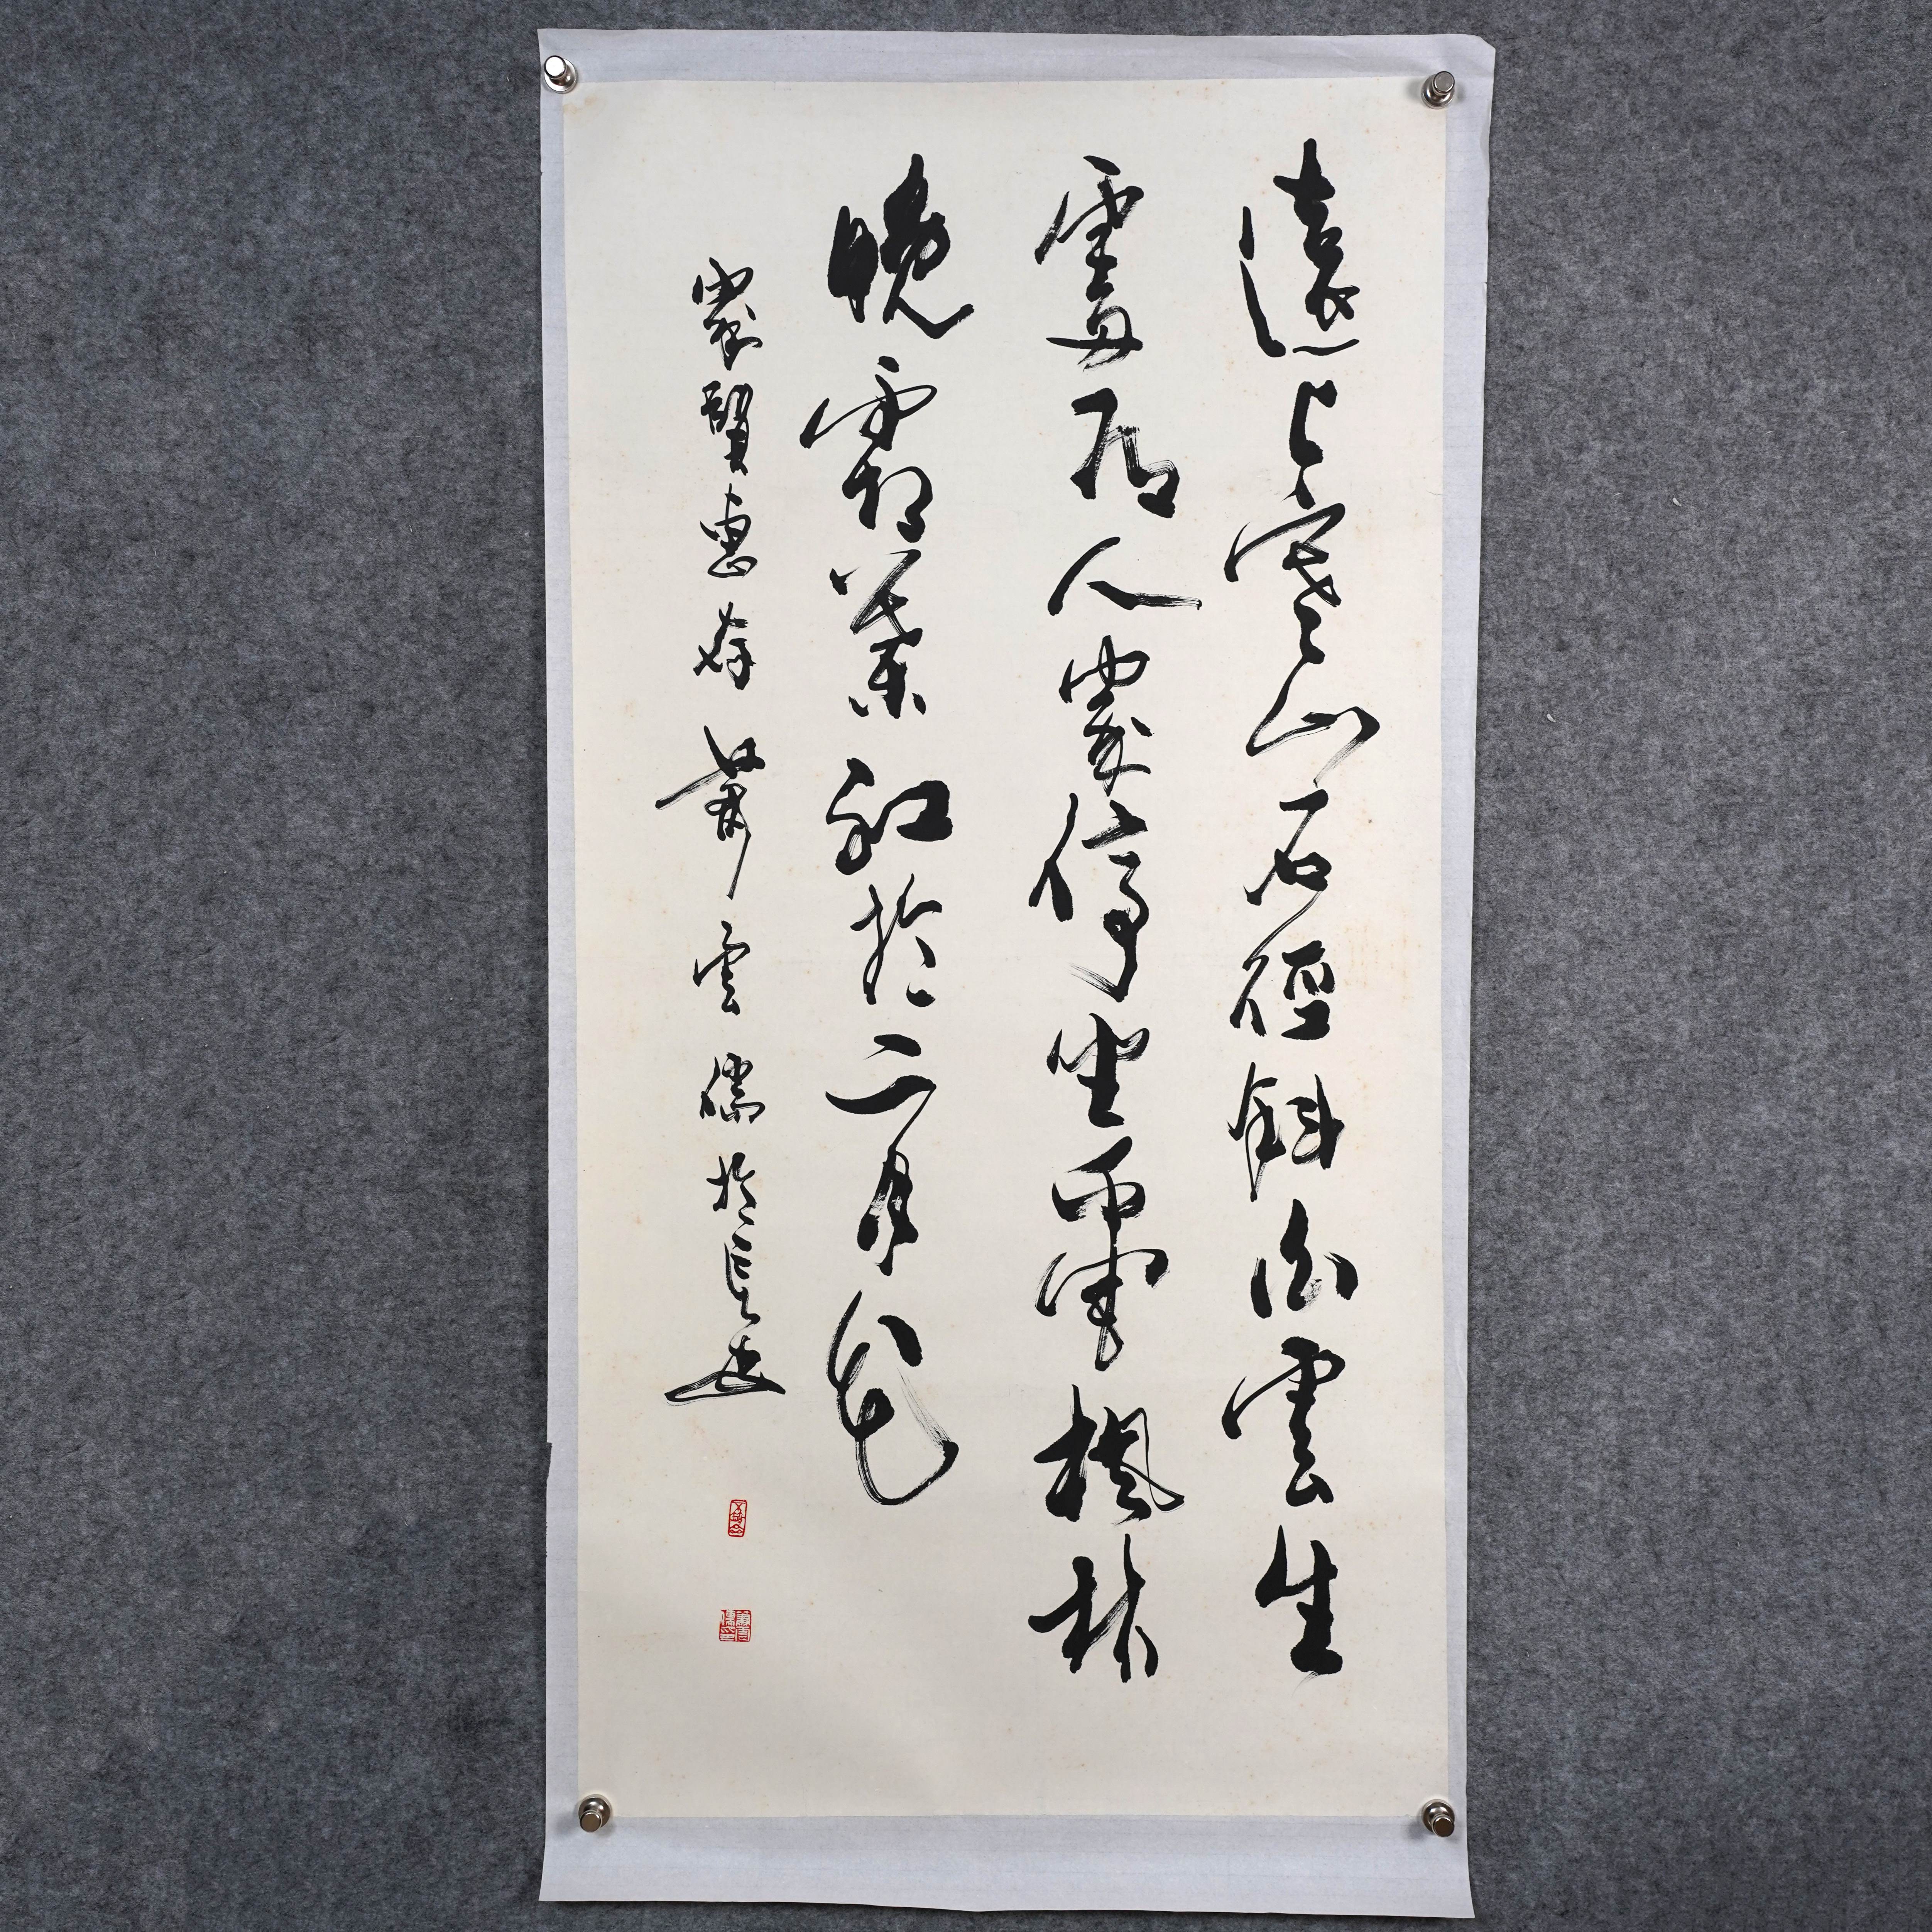 遠上寒山石徑斜白雲生
處有人家停坐愛楓林
晚霜葉紅於二月花
家賢惠存 蕭雲儒於長安